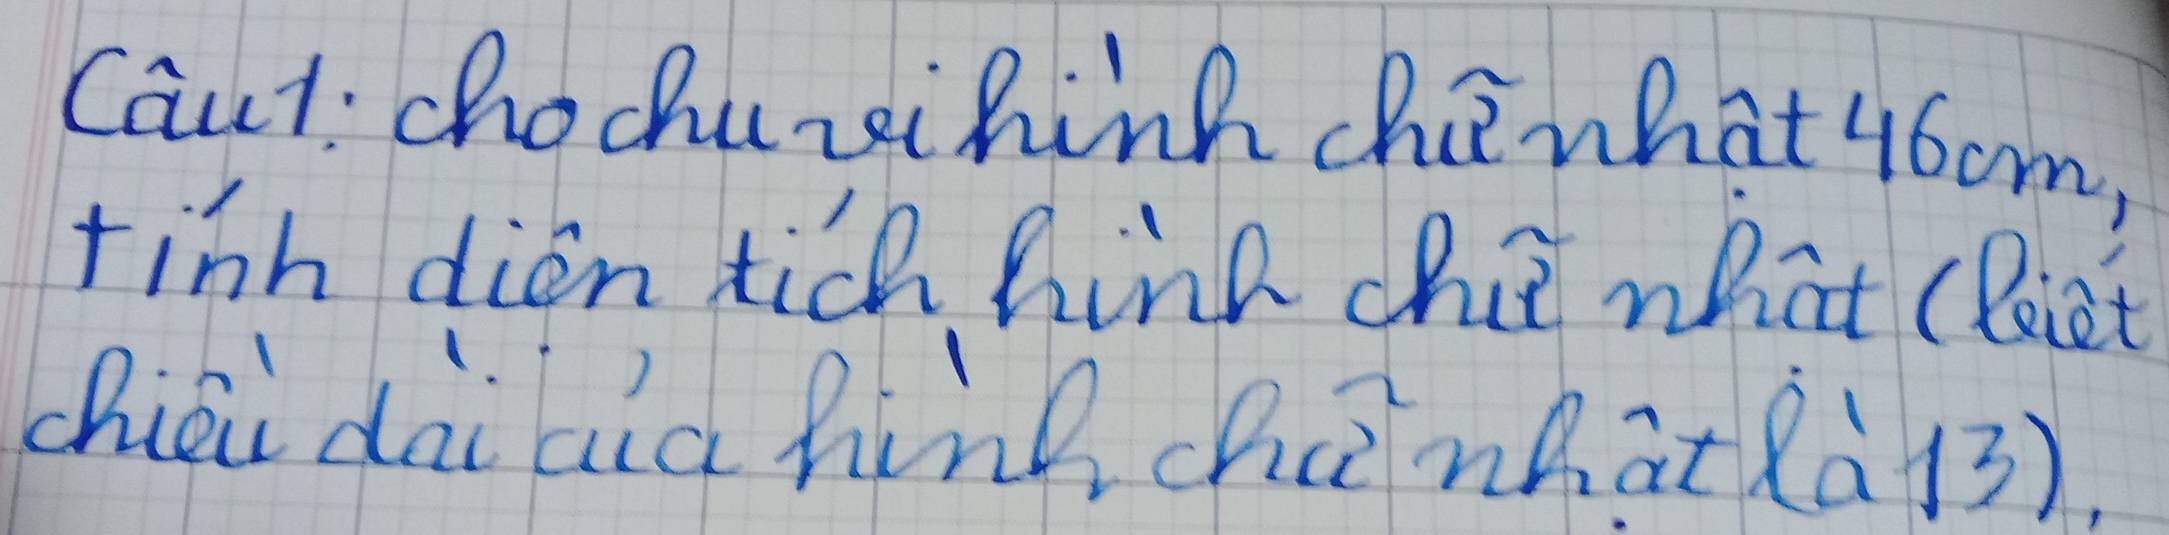 Câu 1: cho chu vi hình chữ nhật 46cm,
tính diện tích hình chữ nhật (biết
chiều dài của hình chữ nhật là 13).